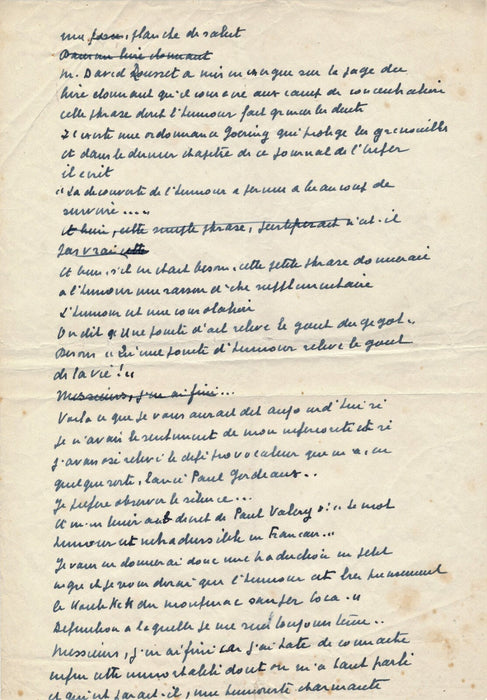 une planche de salut
Dans un livre étonnant
M. David Rousset a mis en exergue sur la page du
livre étonnant qu'il consacre aux camps de concentration
cette phrase dont l'humour fait grincer les dents
Il existe une ordonnance Goering qui protège les grenouilles
et dans le dernier chapitre de ce journal de l'enfer
il écrit
"La découverte de l'humour a permis à beaucoup de
survivre...."
et bien, cette simple phrase, n'est-il
pas vrai cette
et bien s'il en était besoin, cette petite phrase donnerait
à l'humour une raison d'être supplémentaire
L'humour est une consolation
On dit q: Une pointe d'ail relève le gout du gigot..
Disons "Qu'une pointe d'humour relève le gout
de la vie!"
Messieurs, j'en ai fini...
Voila ce que je vous aurais dit aujourd'hui si
je n'avais le sentiment de mon infériorité et si
j'avais osé relever le défi provocateur que m'a, en
quelque sorte, lancé Paul Gordeaux..
Je préfère observer le silence...
et m'en tenir au décret de Paul Valery : "le mot
humour est intraduisible en Français..."
Je vous en donnerai donc une traduction en petit
nègre et je vous dirai que l'humour est très précisément
le Knock du moufmac sanfer loca.."
Définition à laquelle je me suis toujours tenu..
Messieurs, j'en ai fini car j'ai hâte de connaitre
enfin cette immortalité dont on m'a tant parlé
et qui est parait-il, une humoriste charmante